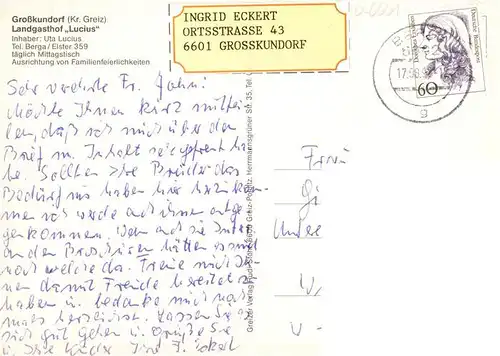 Großkundorf (Kr. Greiz)
Landgasthof „Lucius“
Inhaber: Uta Lucius
Tel. Berga / Elster 359
täglich Mittagstisch
Ausrichtung von Familienfeierlichkeiten
INGRID ECKERT
ORTSSTRASSE 43
6601 GROSSKUNDORF
17.-8.92
Deutsche Bundespost
60
g
Sehr verehrte Fr. Jahn!
Möchte Ihnen kurz mittei
len, daß ich mich über den
Brief m. Inhalt sehr gefreut ha
be. Sollten Ihre Brüder das
Bedürfnis haben hier herzukom
men ich werde auch ihnen entge
genkommen. Wenn auch Sie Intere
an den Broschüren hätten es sind
noch welche da. Freue mich Ih
nen damit Freude bereitet zu
haben u. bedanke mich noch
mals herzlichst. Lassen Sie es
sich gut gehen u. grüße Sie
u. Ihre Brüder Ihre I. Eckert
Greizer Verlag Rudi 6600 Greiz-Pohlitz, Herrmannsgrüner Str. 35, Tel.
Frau
Gi